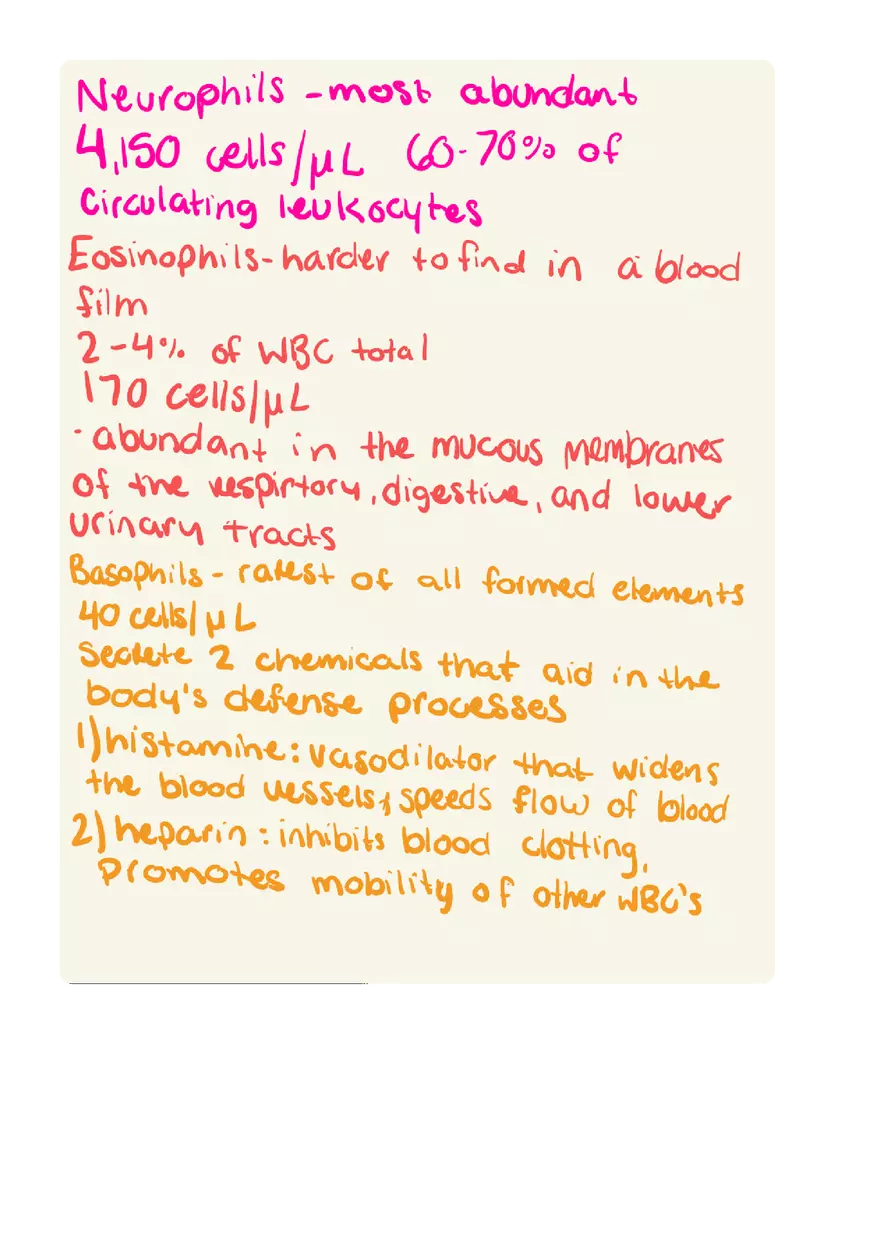 Neurophils - most abundant
4,150 cells/µL 60-70% of
Circulating leukocytes
Eosinophils - harder to find in a blood
film
2-4% of WBC total
170 cells/µL
· abundant in the mucous membranes
of the respirtory, digestive, and lower
urinary tracts
Basophils - rarest of all formed elements
40 cells/µL
Secrete 2 chemicals that aid in the
body's defense processes
1) histamine: vasodilator that widens
the blood vessels, speeds flow of blood
2) heparin: inhibits blood clotting,
promotes mobility of other WBC's